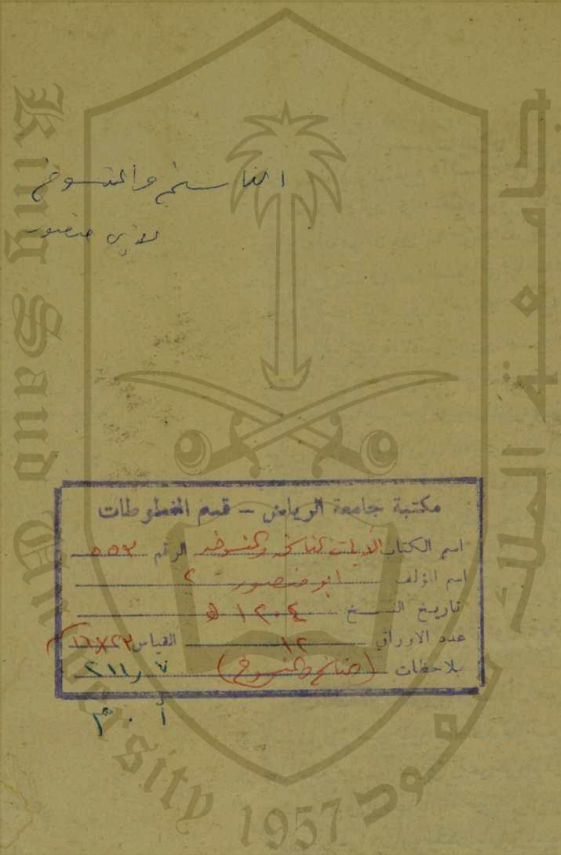 الناسخ والمنسوخ
لابي منصور
مكتبة جامعة الرياض – قسم المخطوطات
اسم الكتاب الآيات الناسخة والمنسوخة الرقم ٥٥٣
اسم المؤلف ابو منصور ؟
تاريخ النسخ ١٢٠٤ هـ
عدد الاوراق ١٢ القياس ٢٣×١٦
ملاحظات (ناسخ ومنسوخ) ٢١١٫٧
أ ٠ م
King Saud University
جامعة الملك سعود
1957